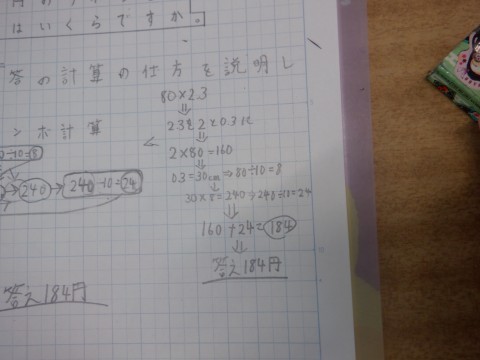 はいくらですか。
答の計算の仕方を説明し
ンボ計算
240→240÷10=24
答え184円
80×2.3
2.3を2と0.3に
2×80=160
0.3=30cm⇒80÷10=8
30×8=240⇒240÷10=24
160+24=184
答え184円